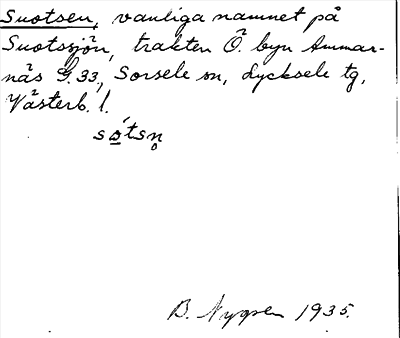 Suotsen, vanliga namnet på
Suotssjön, trakten Ö. byn Ammar-
näs G.33, Sorsele sn, Lycksele tg,
Västerb. l.
so̲̍tsn̥
B. Nygren 1935.